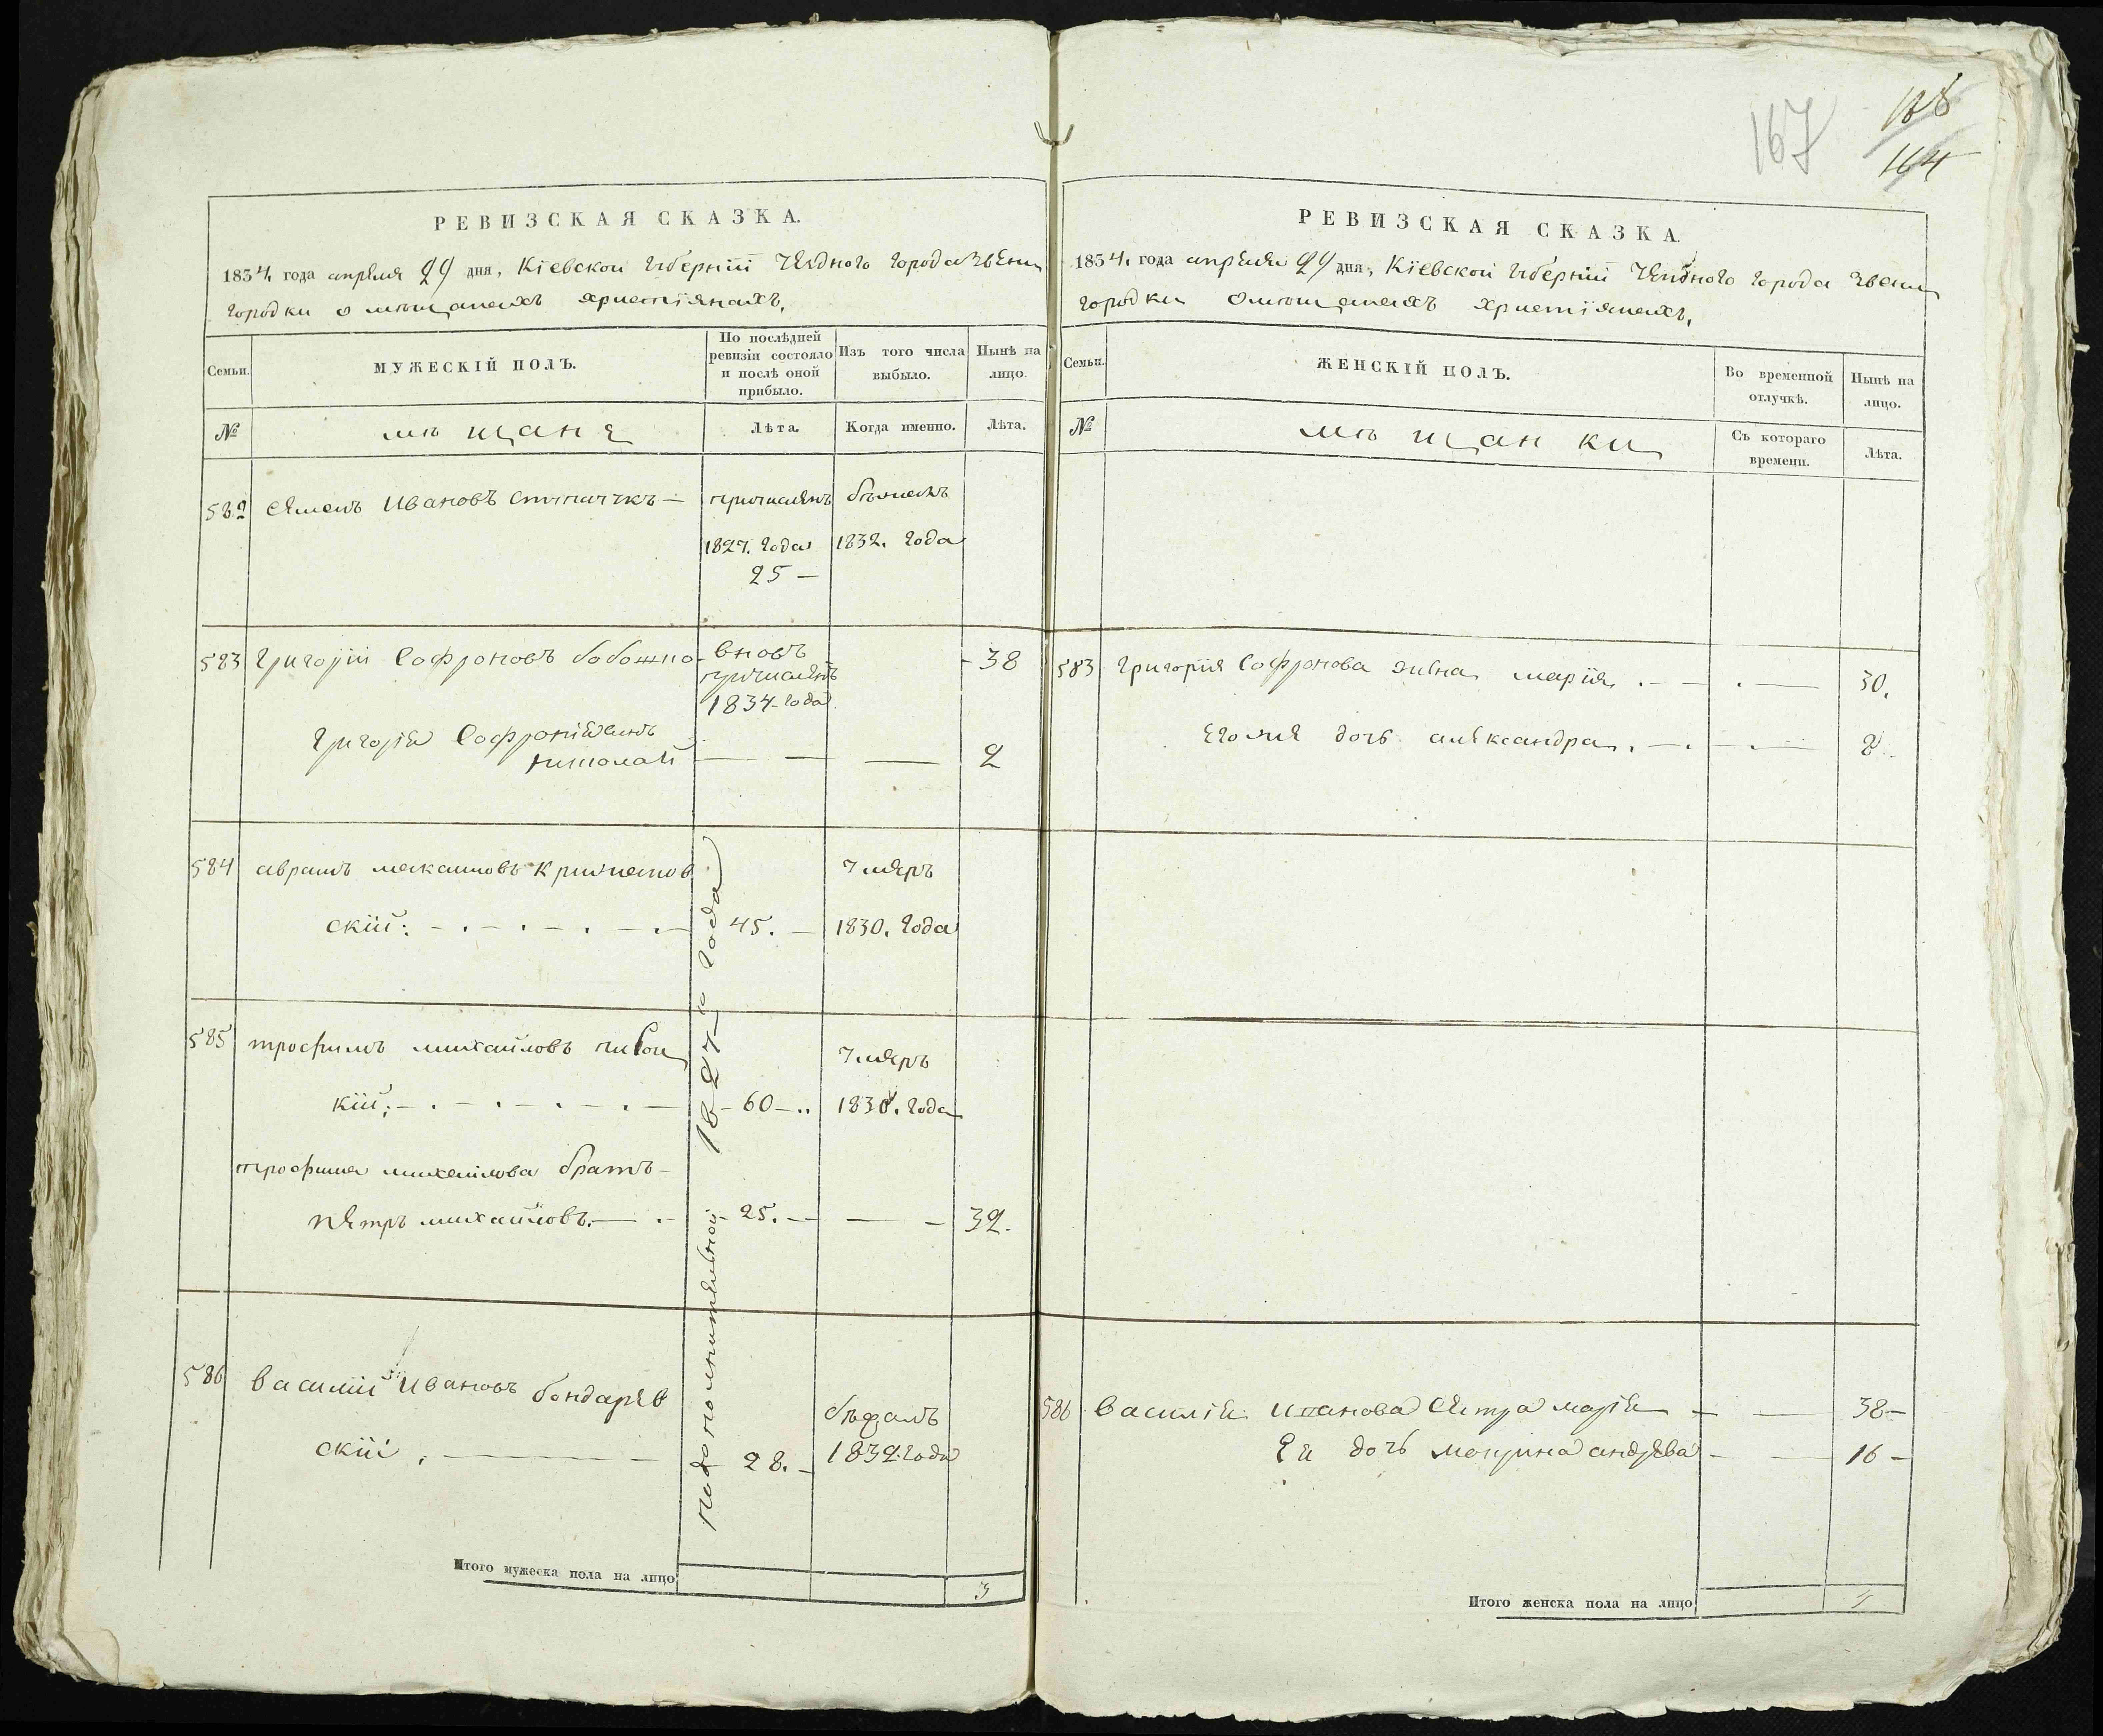 167
164
РЕВИЗСКАЯ СКАЗКА.
1834. года апреля 29 дня, Кіевской Губерніи уезднаго города Звени
городки о мѣщанахъ христіянахъ.
Семьи.
МУЖЕСКІЙ ПОЛЪ.
По послѣдней ревизіи состояло и послѣ оной прибыло.
Изъ того числа выбыло.
Нынѣ на лицо.
№
мѣщане
Лѣта.
Когда именно.
Лѣта.
582 Семенъ Ивановъ — причисленъ
1827. года 1832. года
25 —
583 Григорій Софроновъ вновь 38
причисленъ
1834 года
Григорія Софроніева сынъ
Николай — — — 2
584 аврамъ умеръ
скій: 45. — 1830. года
585 трофимъ михайловъ умеръ
кій; — 60 — года
трофима михайлова братъ —
петръ михайловъ. — 25. — — — 32.
586 василій Ивановъ бондарев
скій, — 28. — 1832. года
по дополнительной 1827 — года
Итого мужеска пола на лицо 3
РЕВИЗСКАЯ СКАЗКА.
1834. года апреля 29 дня, Кіевской Губерніи уезднаго города Звени
городки о мѣщанахъ христіянахъ.
Семьи.
ЖЕНСКІЙ ПОЛЪ.
Во временной отлучкѣ.
Нынѣ на лицо.
№
мѣщанки
Съ котораго времени.
Лѣта.
583 Григорія Софронова жена марія. — — 30.
Его дочь александра. — — —
586 Василія Иванова сестра марія — — 38 —
Ея дочь андреева — — 16 —
Итого женска пола на лицо